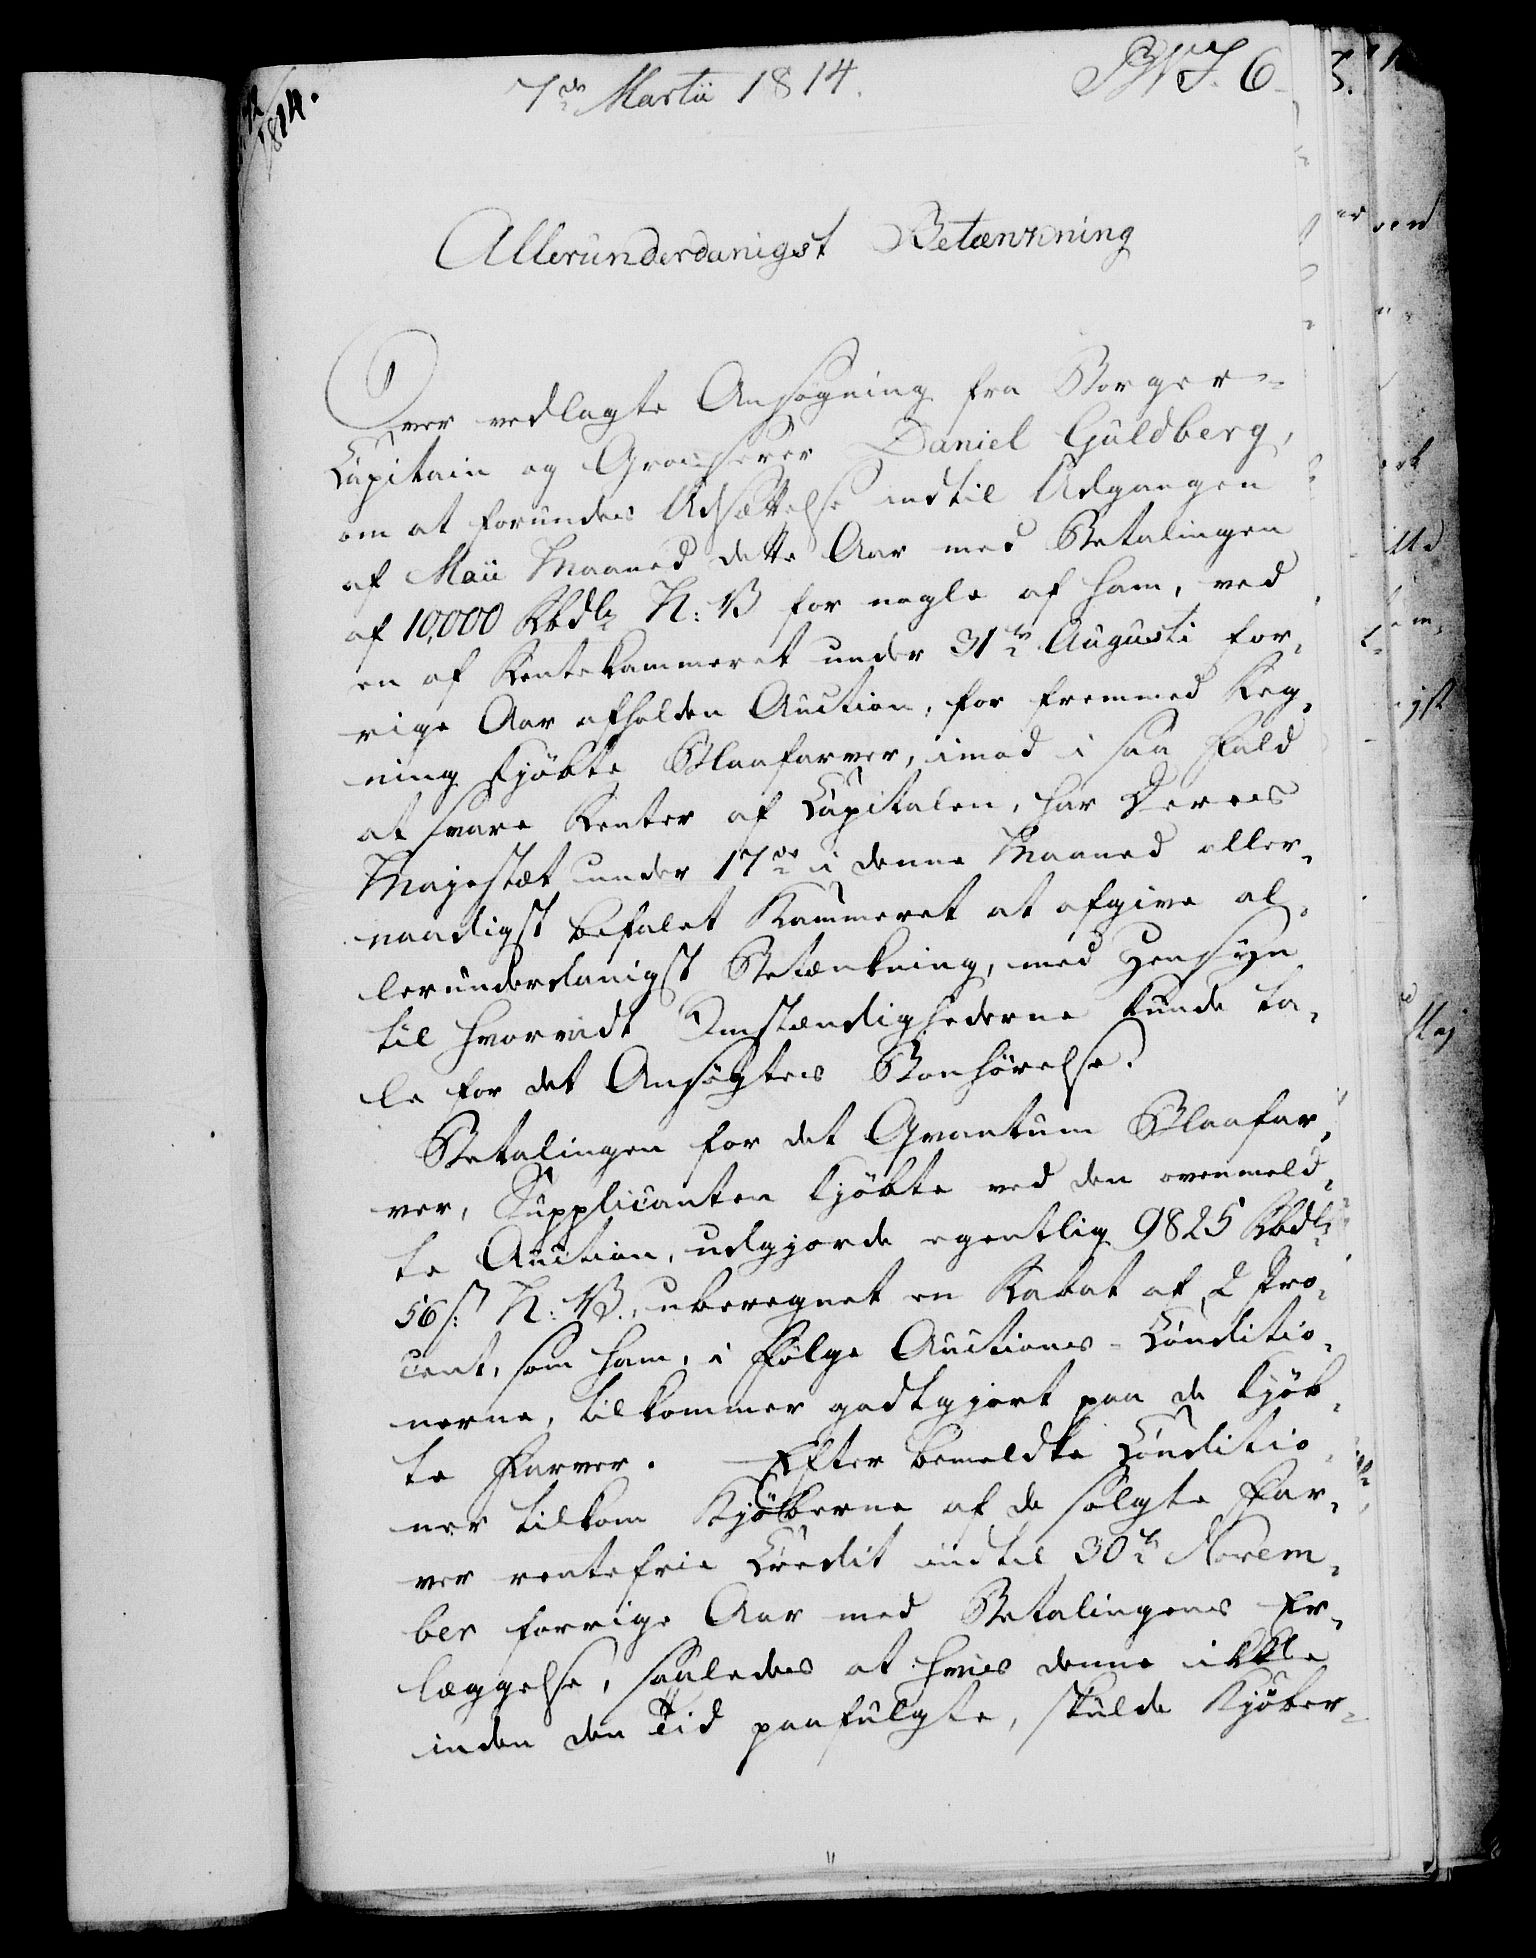 7de Martii 1814.
Allerunderdanigst Betænkning
Over vedlagte Ansøgning fra Borger-
Capitain og Grosserer Daniel Guldberg,
om at forundes Udsættelse indtil Udgangen
af Maii Maaned dette Aar med Betalingen
af 10,000 Rbdlr N: V for nogle af ham, ved
en af Rentekammeret under 31te Augusti for-
rige Aar afholden Auction, for fremmed Reg-
ning kjøbte Blaafarver, imod i saa Fald
at svare Renter af Capitalen, har Deres
Majestæt under 17de i denne Maaned aller-
naadigst befalet Kammeret at afgive al-
lerunderdanigst Betænkning, med Hensyn
til hvorvidt Omstændighederne kunde ta-
le for det Ansøgtes Bønhørelse.
Betalingen for det Qvantum Blaafar-
ver, Supplicanten kjøbte ved den ovenmeld-
te Auction, udgjorde egentlig 9825 Rbdlr
56 s: N: V., uberegnet en Rabat af 2 Pro-
cent, som ham, i Følge Auctions-Conditio-
nerne, tilkommer godtgjort paa de kjøb-
te Farver. Efter bemeldte Conditio-
ner tilkom Kjøberne af de solgte Far-
ver rentefrie Credit indtil 30te Novem-
ber forrige Aar med Betalingens Er-
læggelse, saaledes at hvis denne ikke
inden den Tid paafulgte, skulde Kjøber-